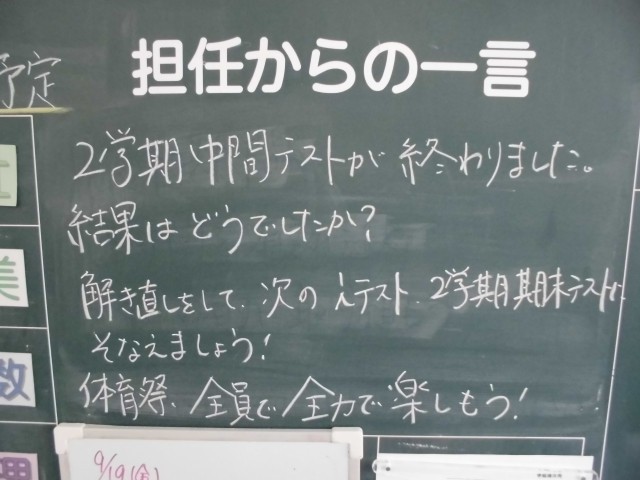 担任からの一言
予定
2学期中間テストが終わりました。
結果はどうでしたか?
解き直しをして、次の テスト、2学期期末テストに
そなえましょう!
体育祭、全員で全力で楽しもう!
美
数
理
9/19(金)